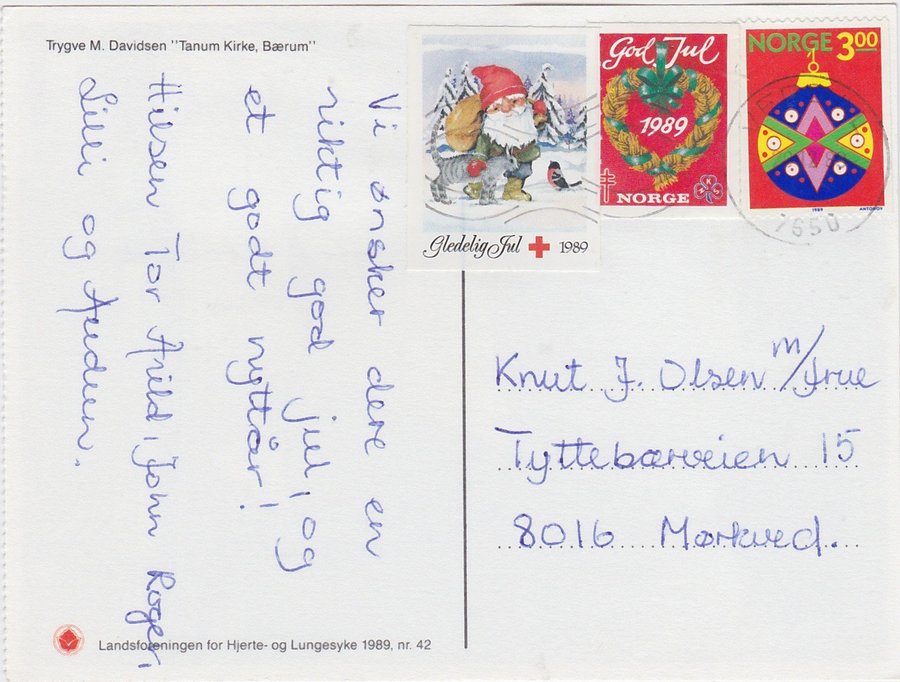 Trygve M. Davidsen "Tanum Kirke, Bærum"
Vi ønsker dere en
riktig god jul, og
et godt nyttår!
Hilsen Tor Arild, John Roger,
Lilli og Audun.
Landsforeningen for Hjerte- og Lungesyke 1989, nr. 42
Gledelig Jul 1989
God Jul
1989
NORGE
NKS
NORGE 3.00
1989 ANTONOV
7650
Knut J. Olsen m/frue
Tyttebærveien 15
8016 Mørkved.